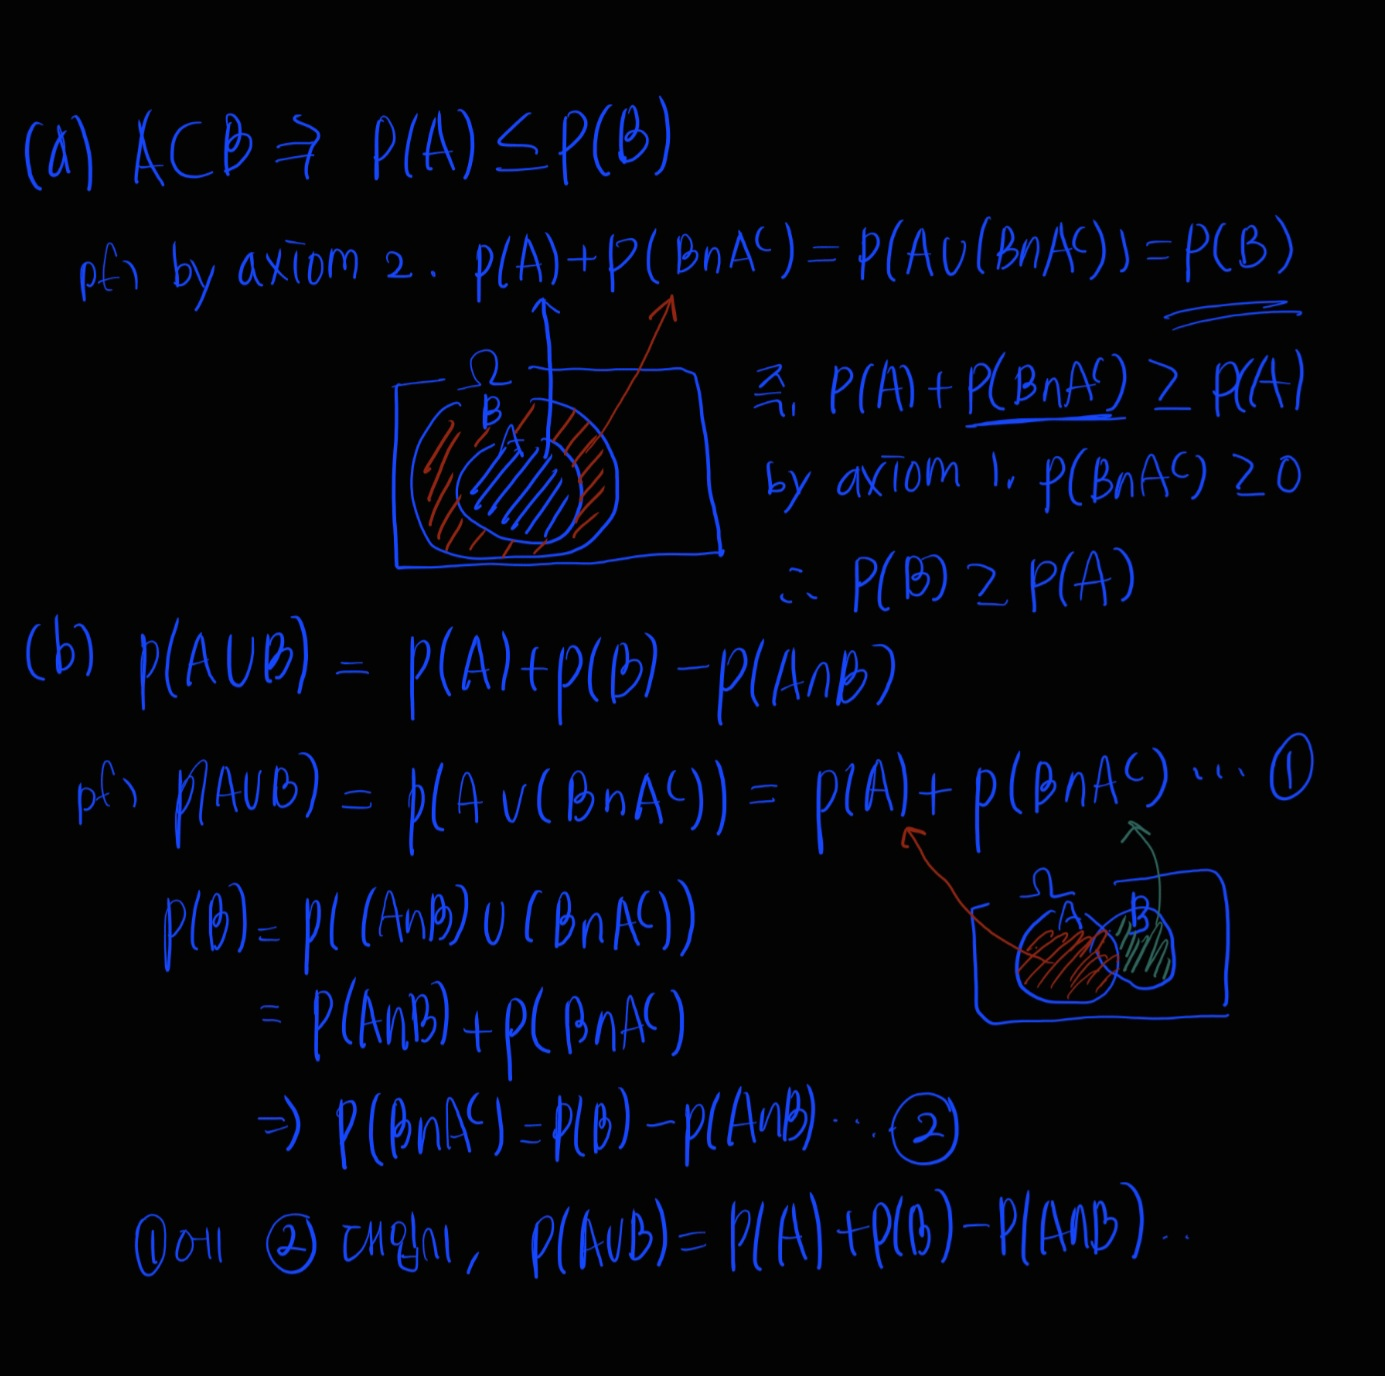 (a) A⊂B ⇒ P(A) ≤ P(B)
pf) by axiom 2. P(A)+P(B∩Aᶜ) = P(A∪(B∩Aᶜ)) = P(B)
Ω
B
A
즉, P(A)+P(B∩Aᶜ) ≥ P(A)
by axiom 1, P(B∩Aᶜ) ≥ 0
∴ P(B) ≥ P(A)
(b) P(A∪B) = P(A)+P(B)-P(A∩B)
pf) P(A∪B) = P(A∪(B∩Aᶜ)) = P(A)+P(B∩Aᶜ) ... ①
Ω
A B
P(B) = P((A∩B)∪(B∩Aᶜ))
= P(A∩B)+P(B∩Aᶜ)
⇒ P(B∩Aᶜ) = P(B)-P(A∩B) ... ②
①에 ② 대입, P(A∪B) = P(A)+P(B)-P(A∩B) ..